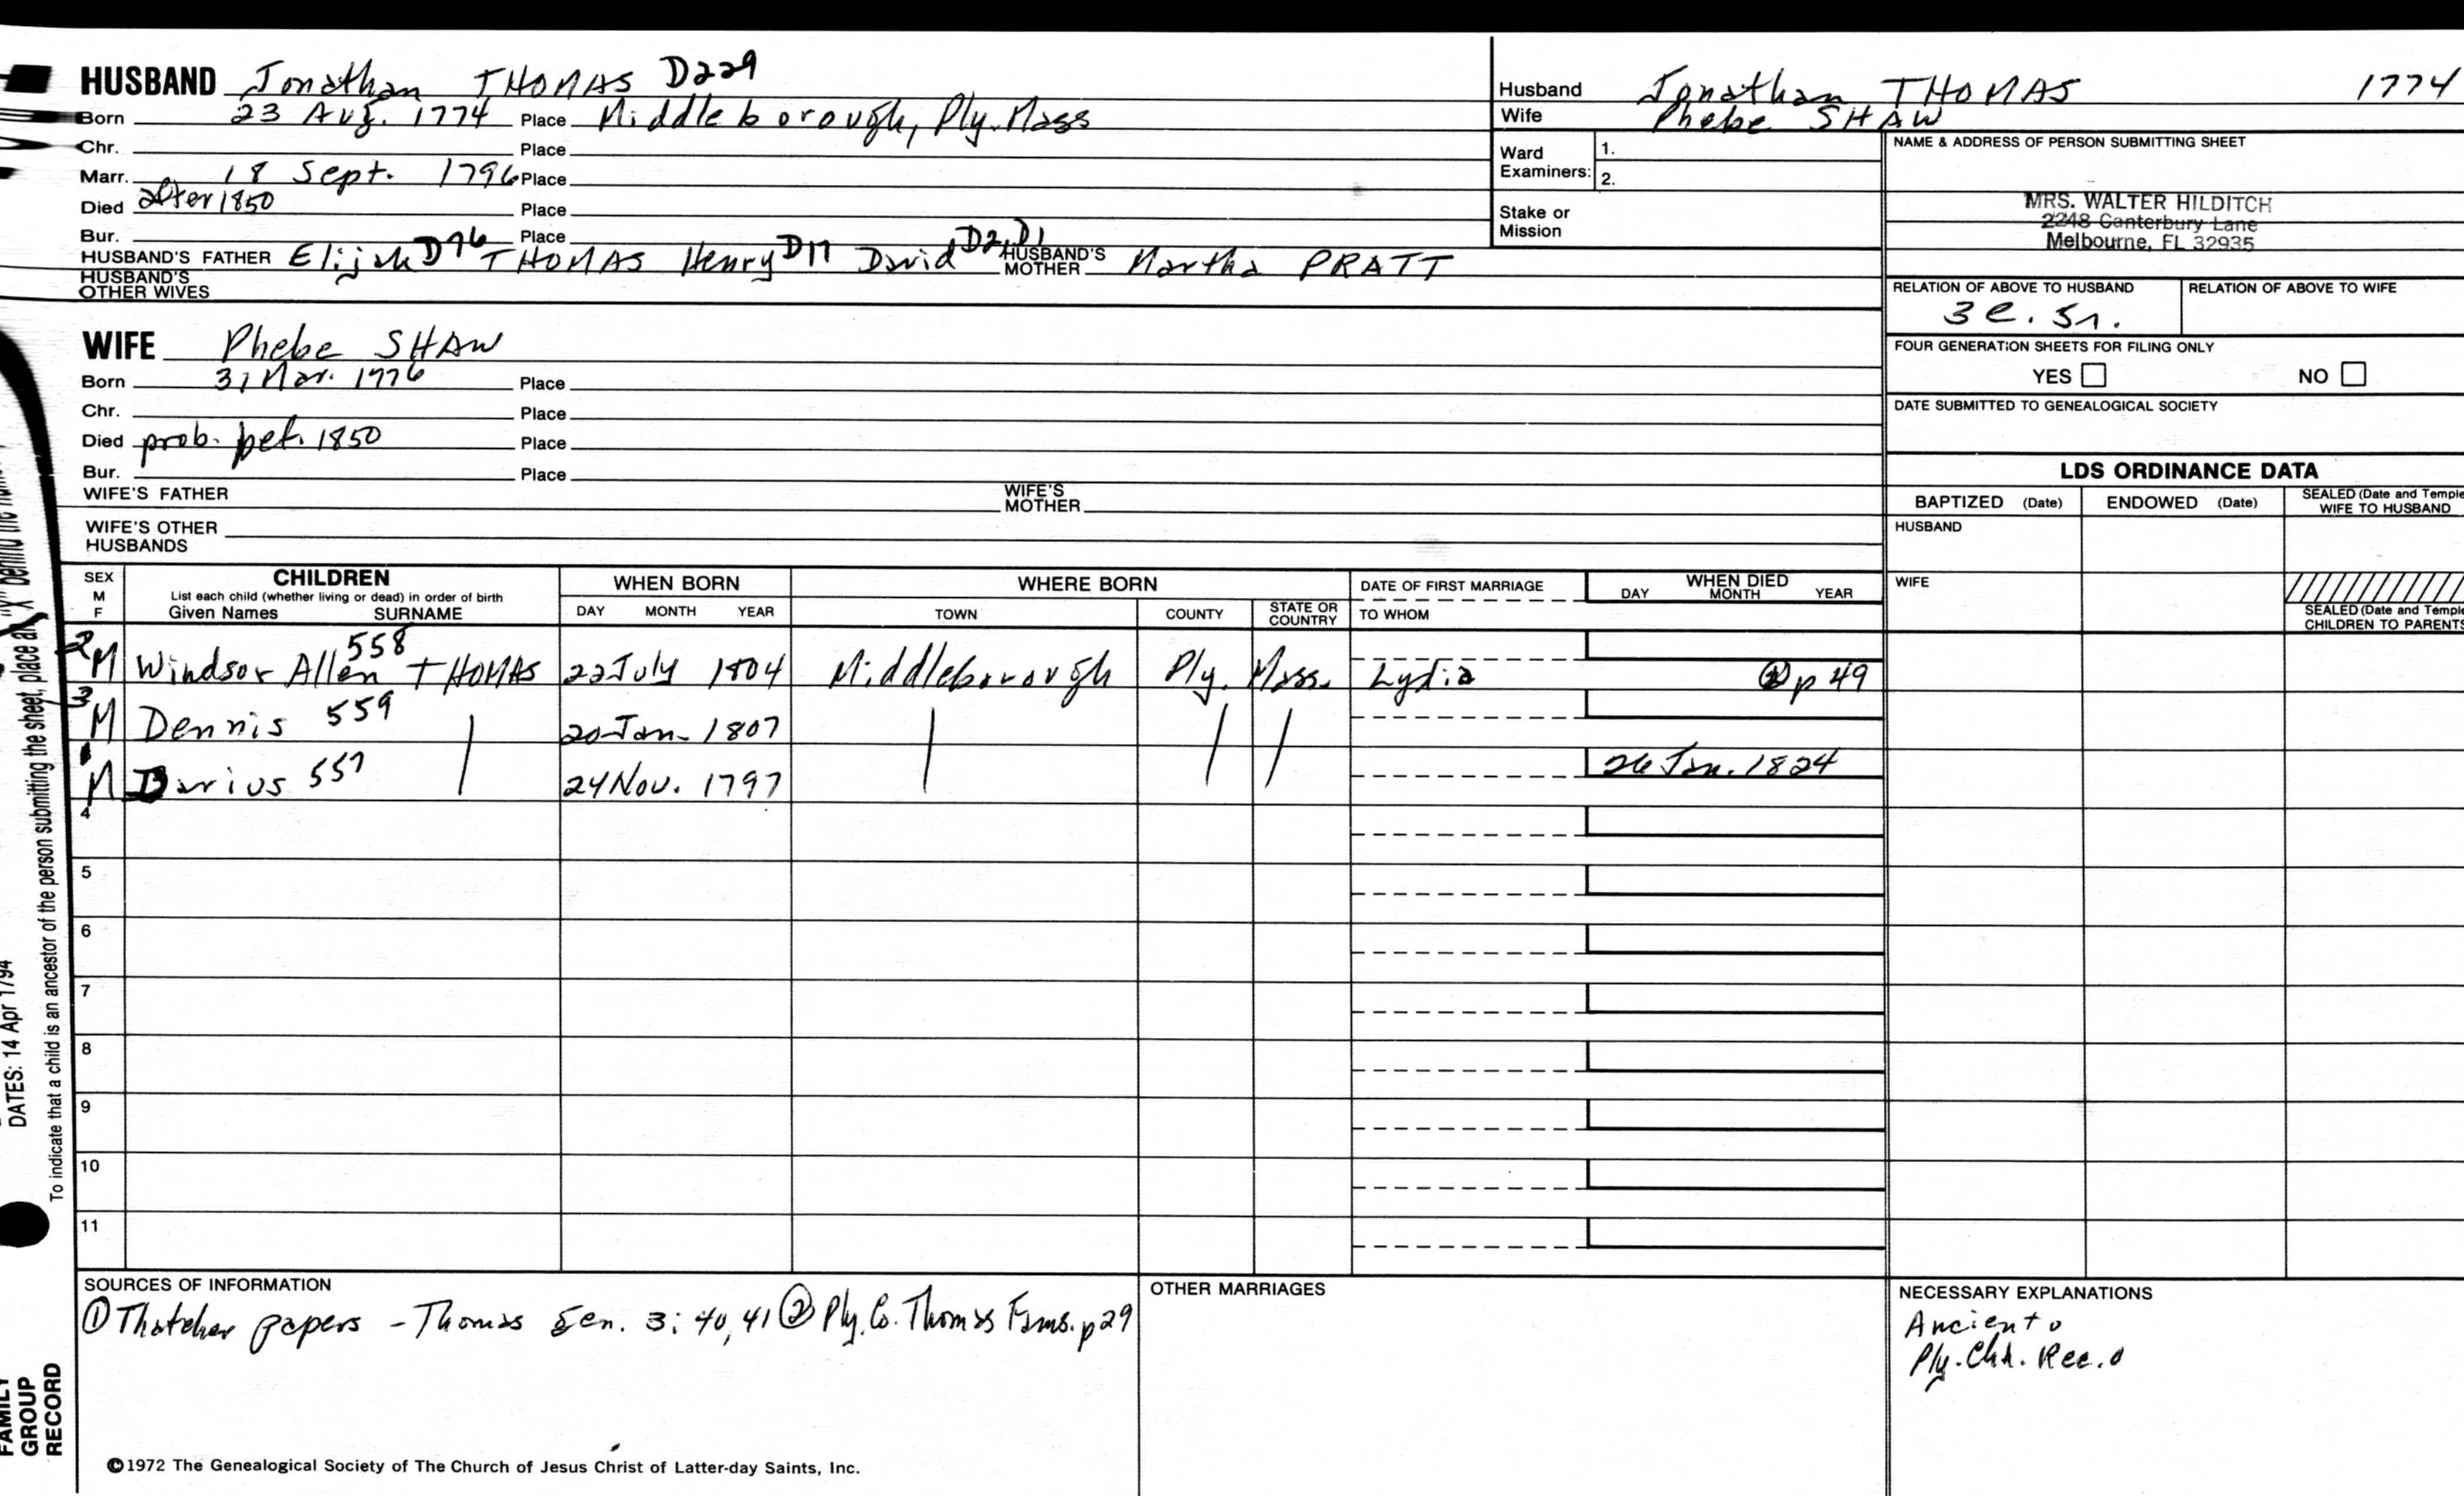 HUSBAND Jonathan THOMAS D229
Born 23 Aug. 1774 Place Middleborough, Ply. Mass
Chr. Place
Marr. 18 Sept. 1796 Place
Died after 1850 Place
Bur. Place
HUSBAND'S FATHER Elijah D76 THOMAS Henry D17 David D2, D1 HUSBAND'S MOTHER Martha PRATT
HUSBAND'S OTHER WIVES
WIFE Phebe SHAW
Born 31 Mar. 1776 Place
Chr. Place
Died prob. bef. 1850 Place
Bur. Place
WIFE'S FATHER WIFE'S MOTHER
WIFE'S OTHER HUSBANDS
Husband Jonathan THOMAS 1774
Wife Phebe SHAW
Ward Examiners: 1.
2.
Stake or Mission
NAME & ADDRESS OF PERSON SUBMITTING SHEET
MRS. WALTER HILDITCH
2248 Canterbury Lane
Melbourne, FL 32935
RELATION OF ABOVE TO HUSBAND RELATION OF ABOVE TO WIFE
FOUR GENERATION SHEETS FOR FILING ONLY
YES NO
DATE SUBMITTED TO GENEALOGICAL SOCIETY
LDS ORDINANCE DATA
BAPTIZED (Date) ENDOWED (Date) SEALED (Date and Temple WIFE TO HUSBAND
HUSBAND
WIFE
SEALED (Date and Temple
CHILDREN TO PARENTS
SEX M F CHILDREN WHEN BORN WHERE BORN DATE OF FIRST MARRIAGE WHEN DIED
List each child (whether living or dead) in order of birth
Given Names SURNAME DAY MONTH YEAR TOWN COUNTY STATE OR COUNTRY TO WHOM DAY MONTH YEAR
2 M Windsor Allen 558 THOMAS 22 July 1804 Middleborough Ply. Mass. Lydia ② p 49
3 M Dennis 559 20 Jan. 1807
1 M Darius 557 24 Nov. 1797 26 Jan. 1824
4
5
6
7
8
9
10
11
SOURCES OF INFORMATION
① Thatcher papers - Thomas Gen. 3: 40, 41 ② Ply. Co. Thomas Fams. p 29
OTHER MARRIAGES
NECESSARY EXPLANATIONS
Ancient o
Ply. Ch. Rec. o
©1972 The Genealogical Society of The Church of Jesus Christ of Latter-day Saints, Inc.
To indicate that a child is an ancestor of the person submitting the sheet, place an "X" behind the
DATES: 14 Apr 1794
FAMILY
GROUP
RECORD